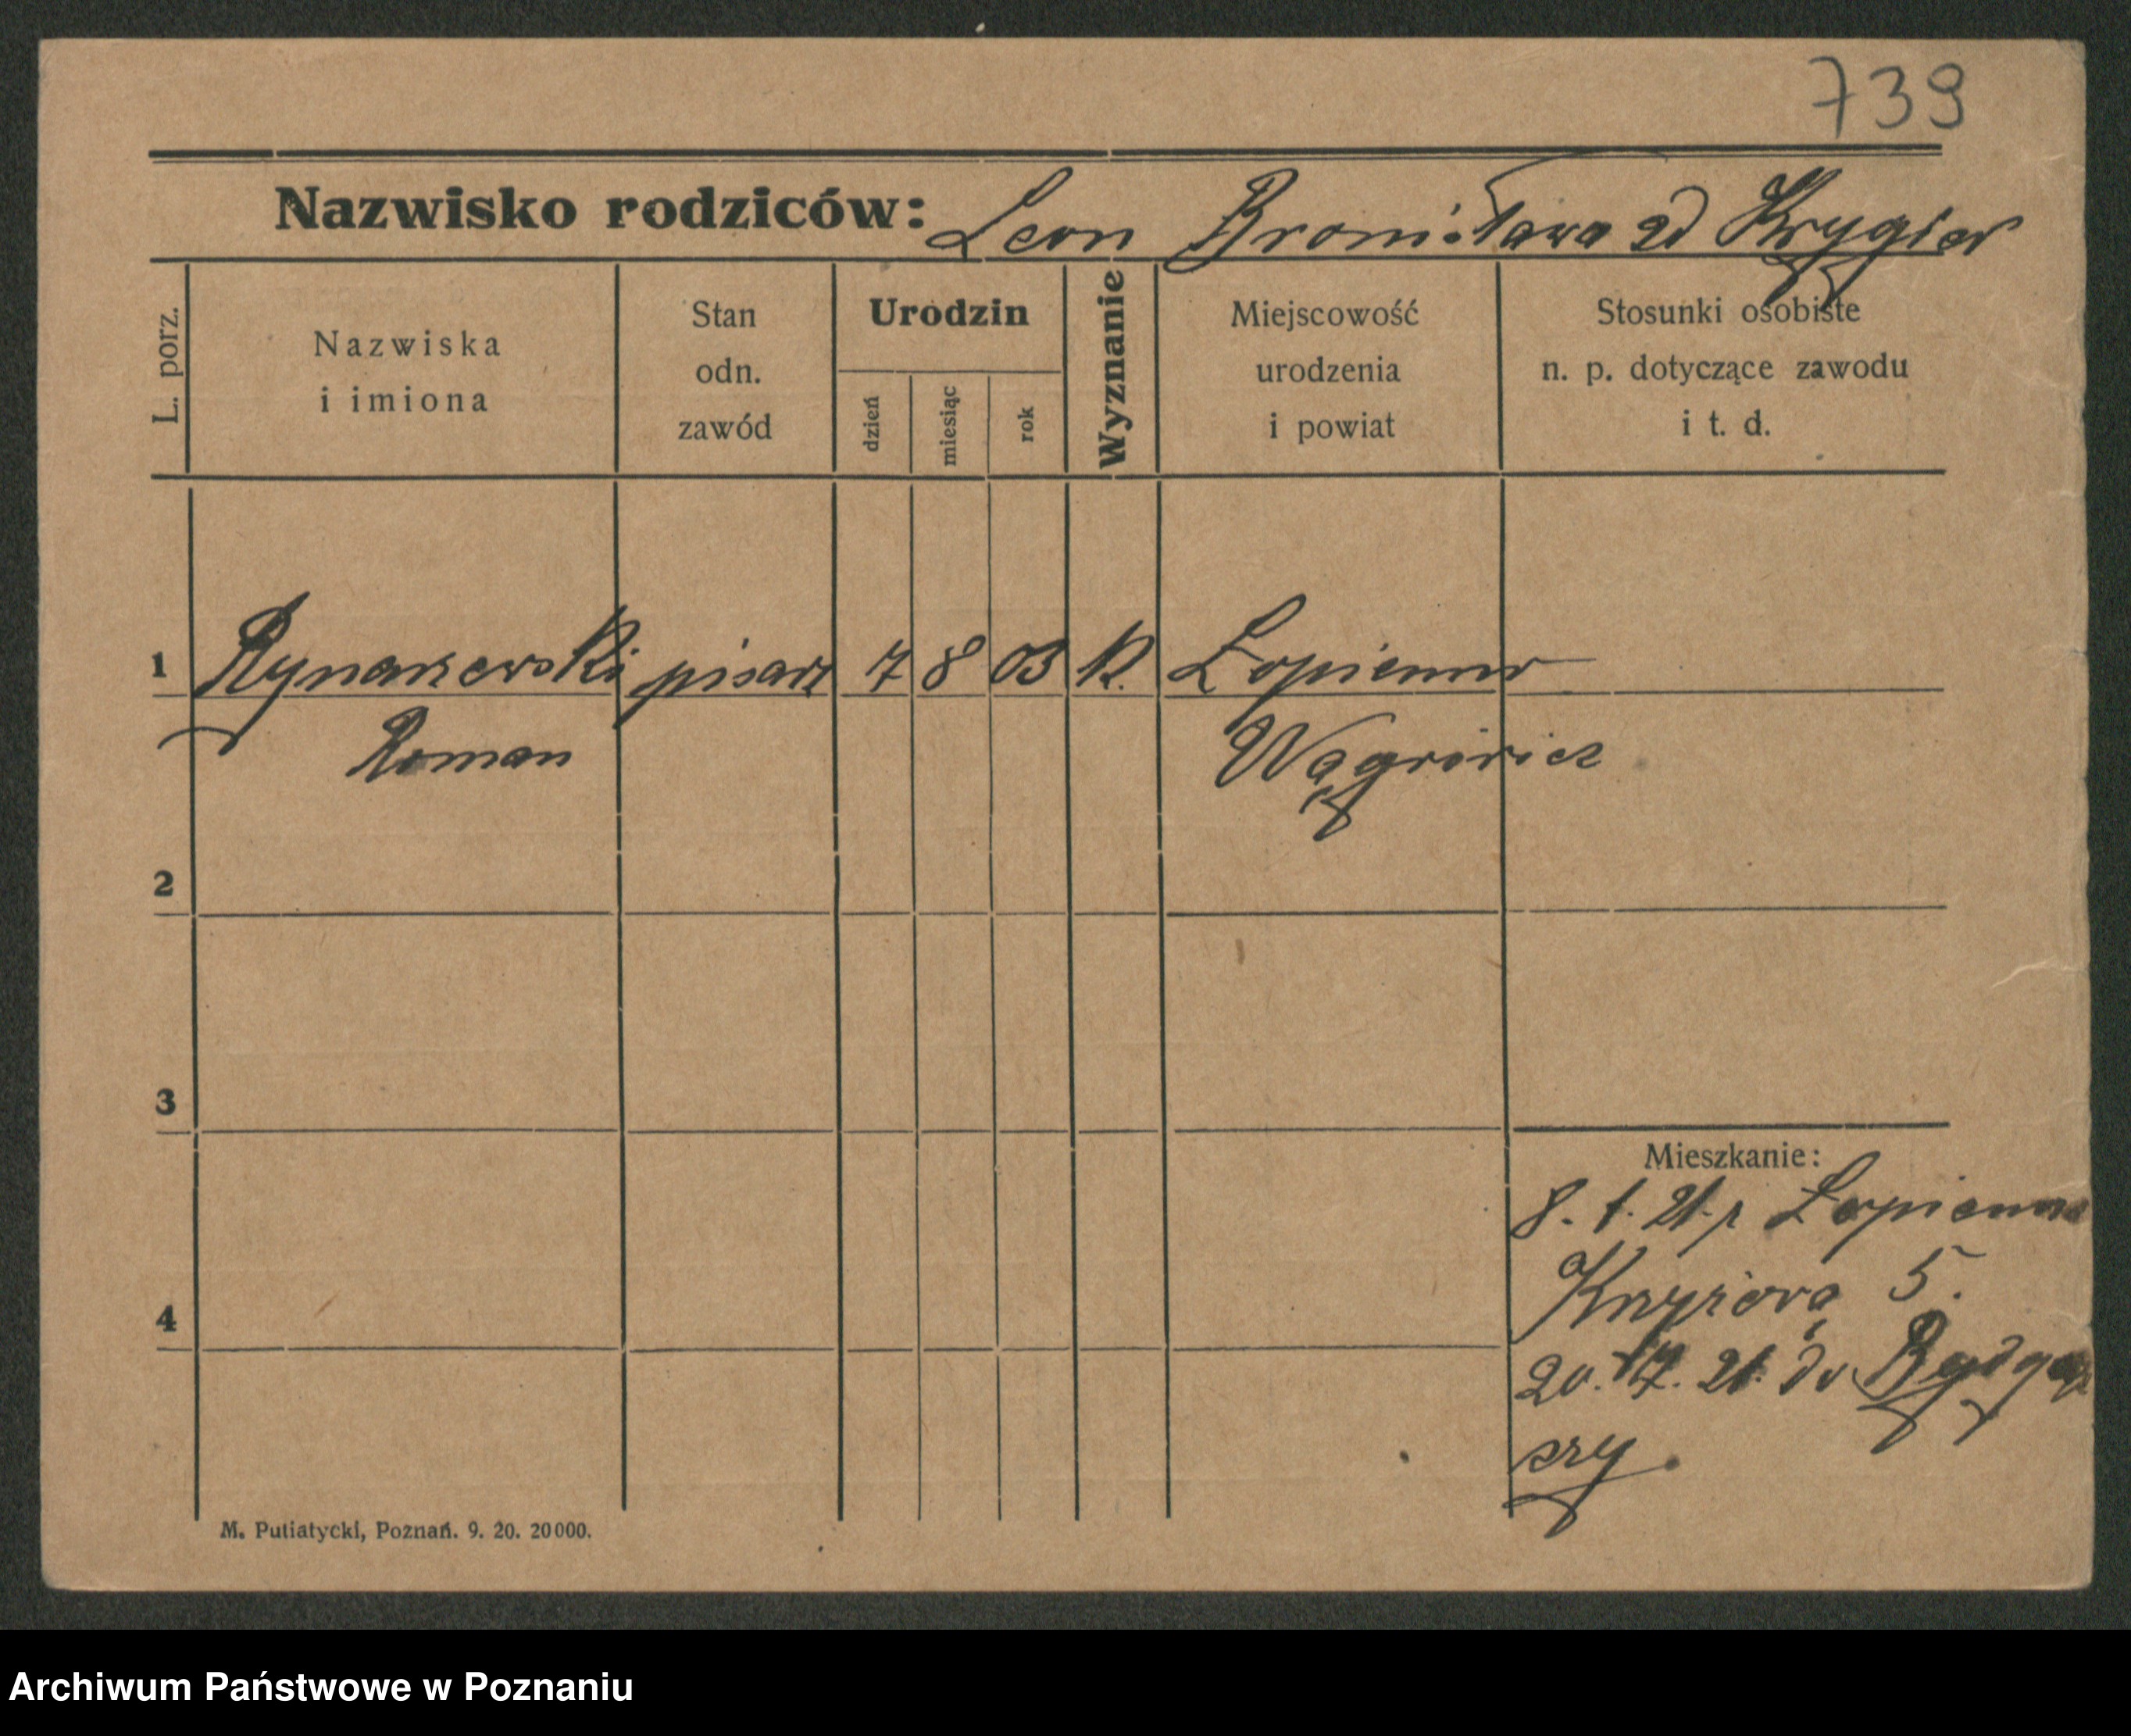 739
Nazwisko rodziców: Leon Bronisława zd Krygier
L. porz.
Nazwiska
i imiona
Stan
odn.
zawód
Urodzin
dzień
miesiąc
rok
Wyznanie
Miejscowość
urodzenia
i powiat
Stosunki osobiste
n. p. dotyczące zawodu
i t. d.
1 Rynarzewski pisarz 7 8 03 k. Łopienno
Roman Wągrówiec
2
3
4
Mieszkanie:
8. 1. 21. z Łopienna
Krzyżowa 5.
20. 21. do Bydgo
szy
M. Putiatycki, Poznań. 9. 20. 20000.
Archiwum Państwowe w Poznaniu